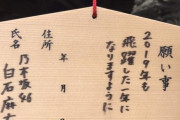 願い事
2019年も
飛躍した一年に
なりますように
年 月
住所
氏名
乃木坂46
白石麻